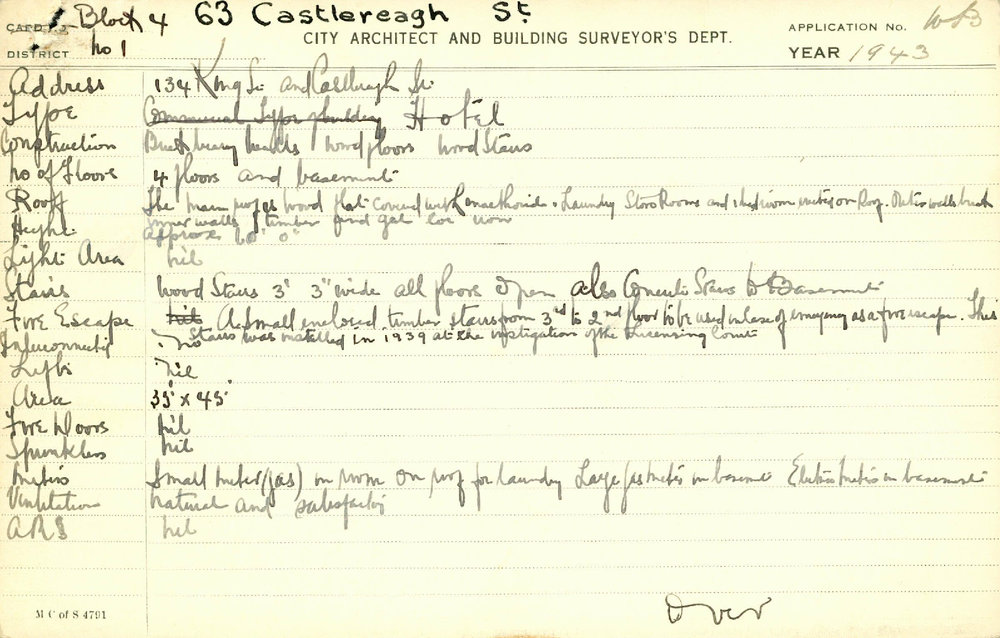 Block 4 63 Castlereagh St
CARD No
CITY ARCHITECT AND BUILDING SURVEYOR'S DEPT.
APPLICATION No.
DISTRICT No 1
YEAR 1943
Address 134 King St and Castlereagh St
Type Commercial Type building Hotel
Construction Brick bearing walls wood floors wood Stairs
No of Floors 4 floors and basement
Roof The main roof is wood flat covered with Laundry Store Rooms and on Roof. walls brick
inner walls timber and gal iron
Height approx 60' 0"
Light Area nil
Stairs wood Stairs 3' 3" wide all floors Open also Concrete Stairs to Basement
Fire Escape nil A small enclosed timber stairs from 3rd to 2nd floor to be used in case of emergency as a fire escape. This
stairs was installed in 1939 at the instigation of the Licensing Court
Interconnected No
Lifts Nil
Area 35' x 45'
Fire Doors nil
Sprinklers nil
Meters Small meter (gas) in room on roof for laundry Large gas meter in basement Electric meters in basement
Ventilation natural and satisfactory
ARS nil
M C of S 4791
Over